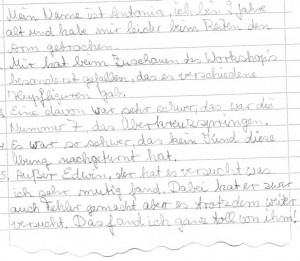 Mein Name ist Antonia, ich bin 9 Jahre
alt und habe mir leider beim Reiten den
Arm gebrochen.
Mir hat beim Zuschauen des Workshops
besonderst gefallen, das es verschiedene
Hüpffiguren gab.
Eine davon war sehr schwer, das war die
Nummer 7, das Überkreuzspringen.
4. Es war so schwer, das kein Kind diese
Übung nachgeturnt hat.
5. Außer Edwin, der hat es versucht was
ich sehr mutig fand. Dabei hat er zwar
auch Fehler gemacht aber es trotzdem weiter
versucht. Das fand ich ganz toll von ihm!